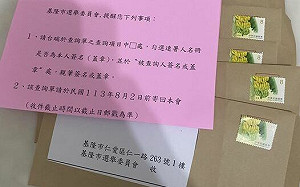 基隆市選舉委員會,提醒您下列事項:
1、請台端於查詢單之查詢項目中□處,勾選連署人名冊
是否為本人簽名(蓋章),並於“被查詢人簽名或蓋
章”處,親筆簽名或蓋章。
2、該查詢單請於民國113年8月2日前寄回本會
(收件截止時間以截止日郵戳為準)
基隆市仁愛區仁一路263號1樓
基隆市選舉委員會 收